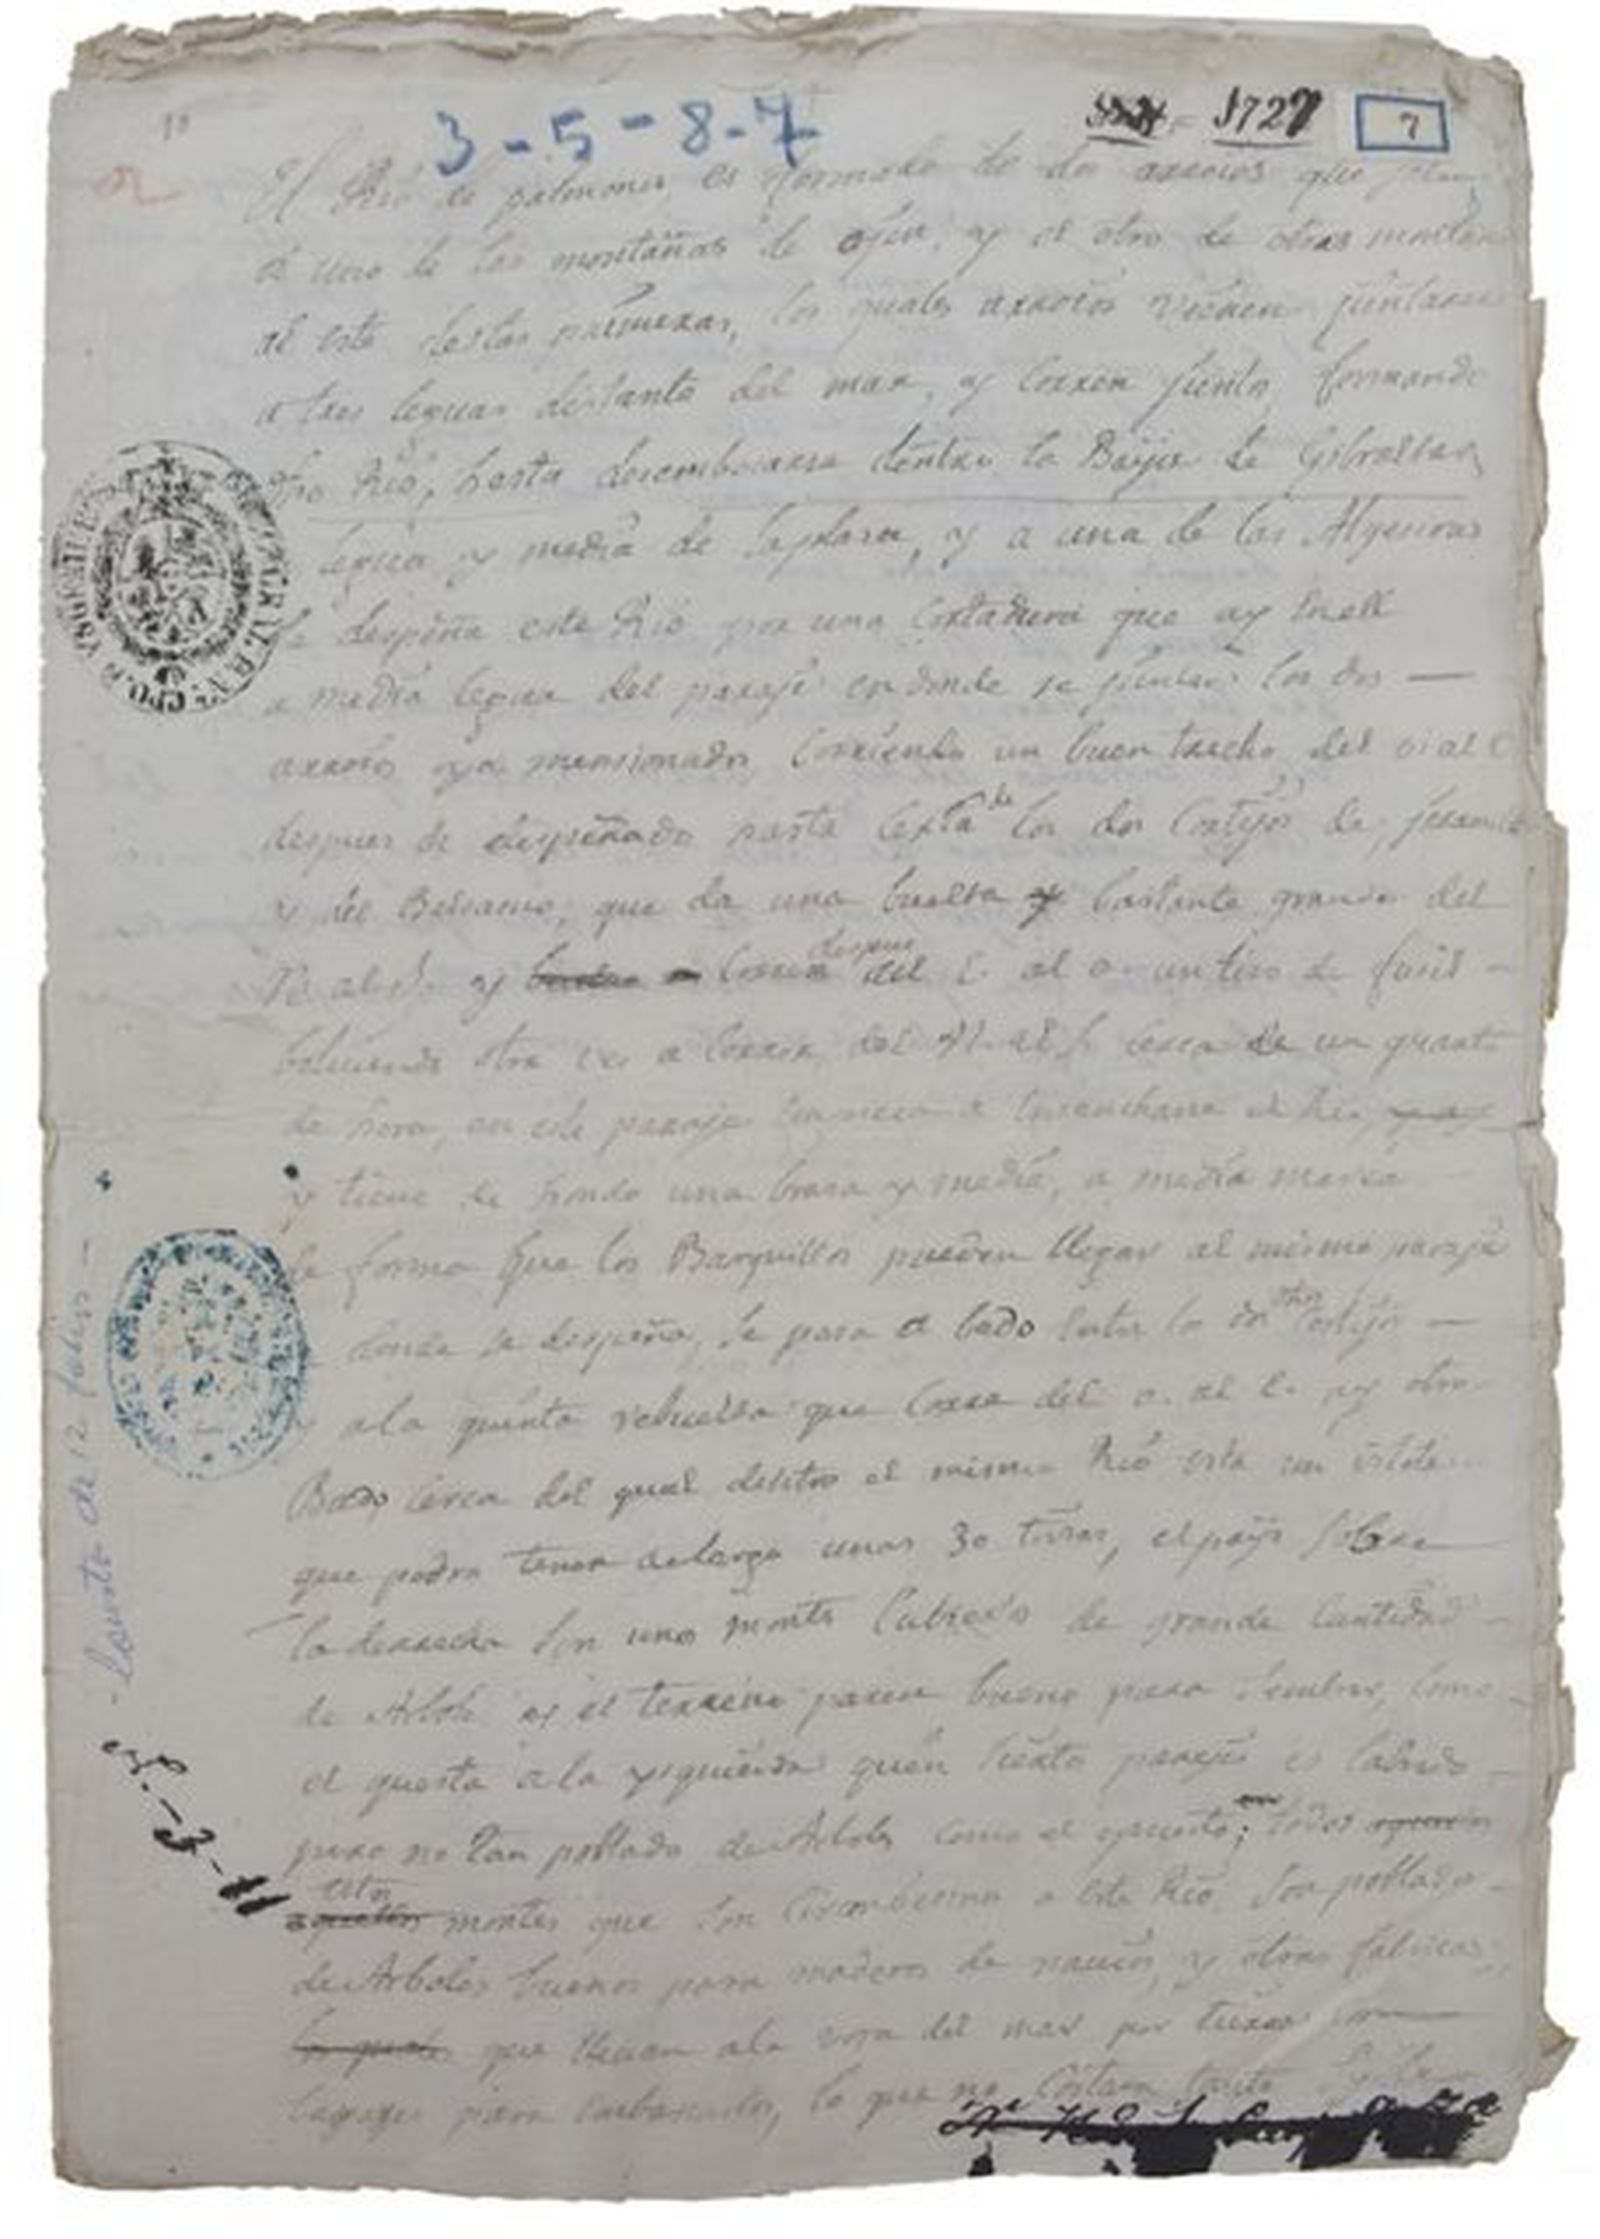 3-5-8-7
1727
7
El Rio de palmones es formado de dos arroios que
el uno de las montañas de ojen, y el otro de otras montañ
al este destas primeras, los quales arroios vienen juntarse
a tres leguas distante del mar, y corren junto formando
dho Rio, hasta desembocarse dentro la Baÿa de Gibraltar
legua y media de la plaza, y a una de las Algeciras
Se despeña este Rio por una Cortadura que ay en ell
a media legua del paraje en donde se juntan los dos —
arroios ya mensionados, Corriendo un buen trecho del o. al e
despues de despeñado hasta cerca de los dos Cortijos de
y del que da una buelta y bastante grande del
y Corren despues del E. al o. un tiro de fusil -
bolviendo otra ves a Correr del N. al S. cerca de un quarto
de hora, en este paraje comiensa a ensancharse el Rio
y tiene de hondo una brasa y media, a media marea
de forma que los Barquillos pueden llegar al mismo paraje
donde se despeña, Se pasa a bado entre los dos dhos Cortijos —
y a la quinta rebuelta que Corre del o. al E. ay otro
Bado cerca del qual dentro el mismo Rio esta un islote
que podra tener de largo unas 30 tuesas, el pays sobre
la derrecha son unos montes Cubiertos de grande Cantidad
de Arboles y el terreno parece bueno para sembrar, como
el questa a la ysquierda quen sierto parajes es labrado
pero no tan poblado de Arboles como el opuesto; todos
estos aquellos montes que son Circonbesinos a este Rio, son poblados
de Arboles buenos para maderos de navios, y otras fabricas,
que llevan a la orilla del mar por tierra con
bagajes para enbarcarlos, lo que no Costara tanto
Consta de 12 folios -
3-11